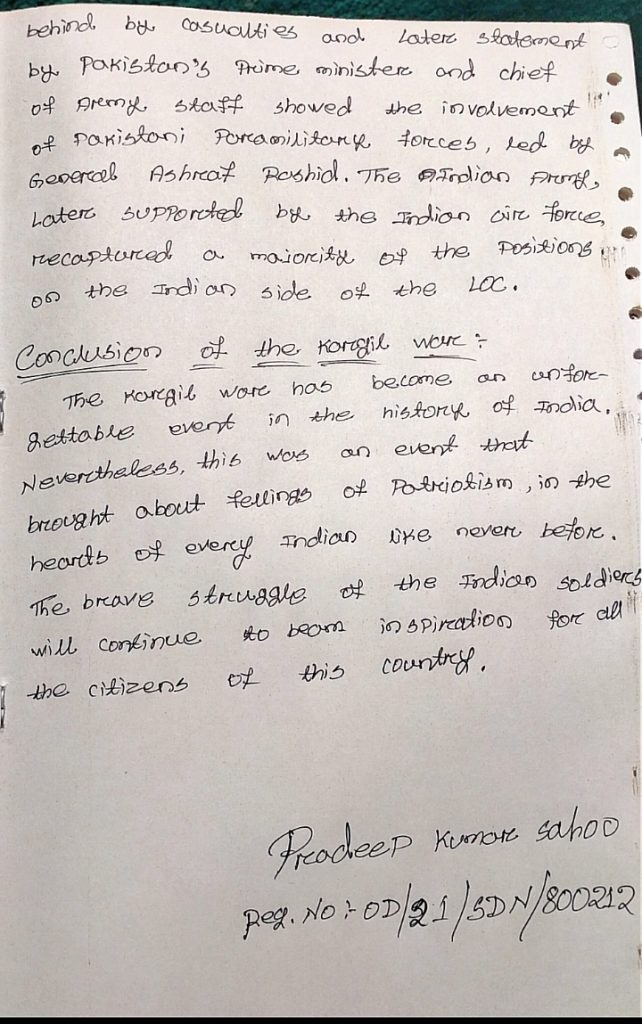 behind by casualties and later statement
by Pakistan's Prime minister and chief
of Army staff showed the involvement
of Pakistani Paramilitary forces, led by
General Ashraf Rashid. The Indian Army,
Later supported by the Indian air force,
recaptured a majority of the positions
on the Indian side of the LOC.
Conclusion of the Kargil war :-
The Kargil war has become an unfor-
gettable event in the history of India.
Nevertheless, this was an event that
brought about fellings of Patriotism, in the
heards of every Indian like never before.
The brave struggle of the Indian soldiers
will continue to beam inspiration for all
the citizens of this country.
Pradeep Kumar Sahoo
Reg. No :- OD/21/SDN/800212